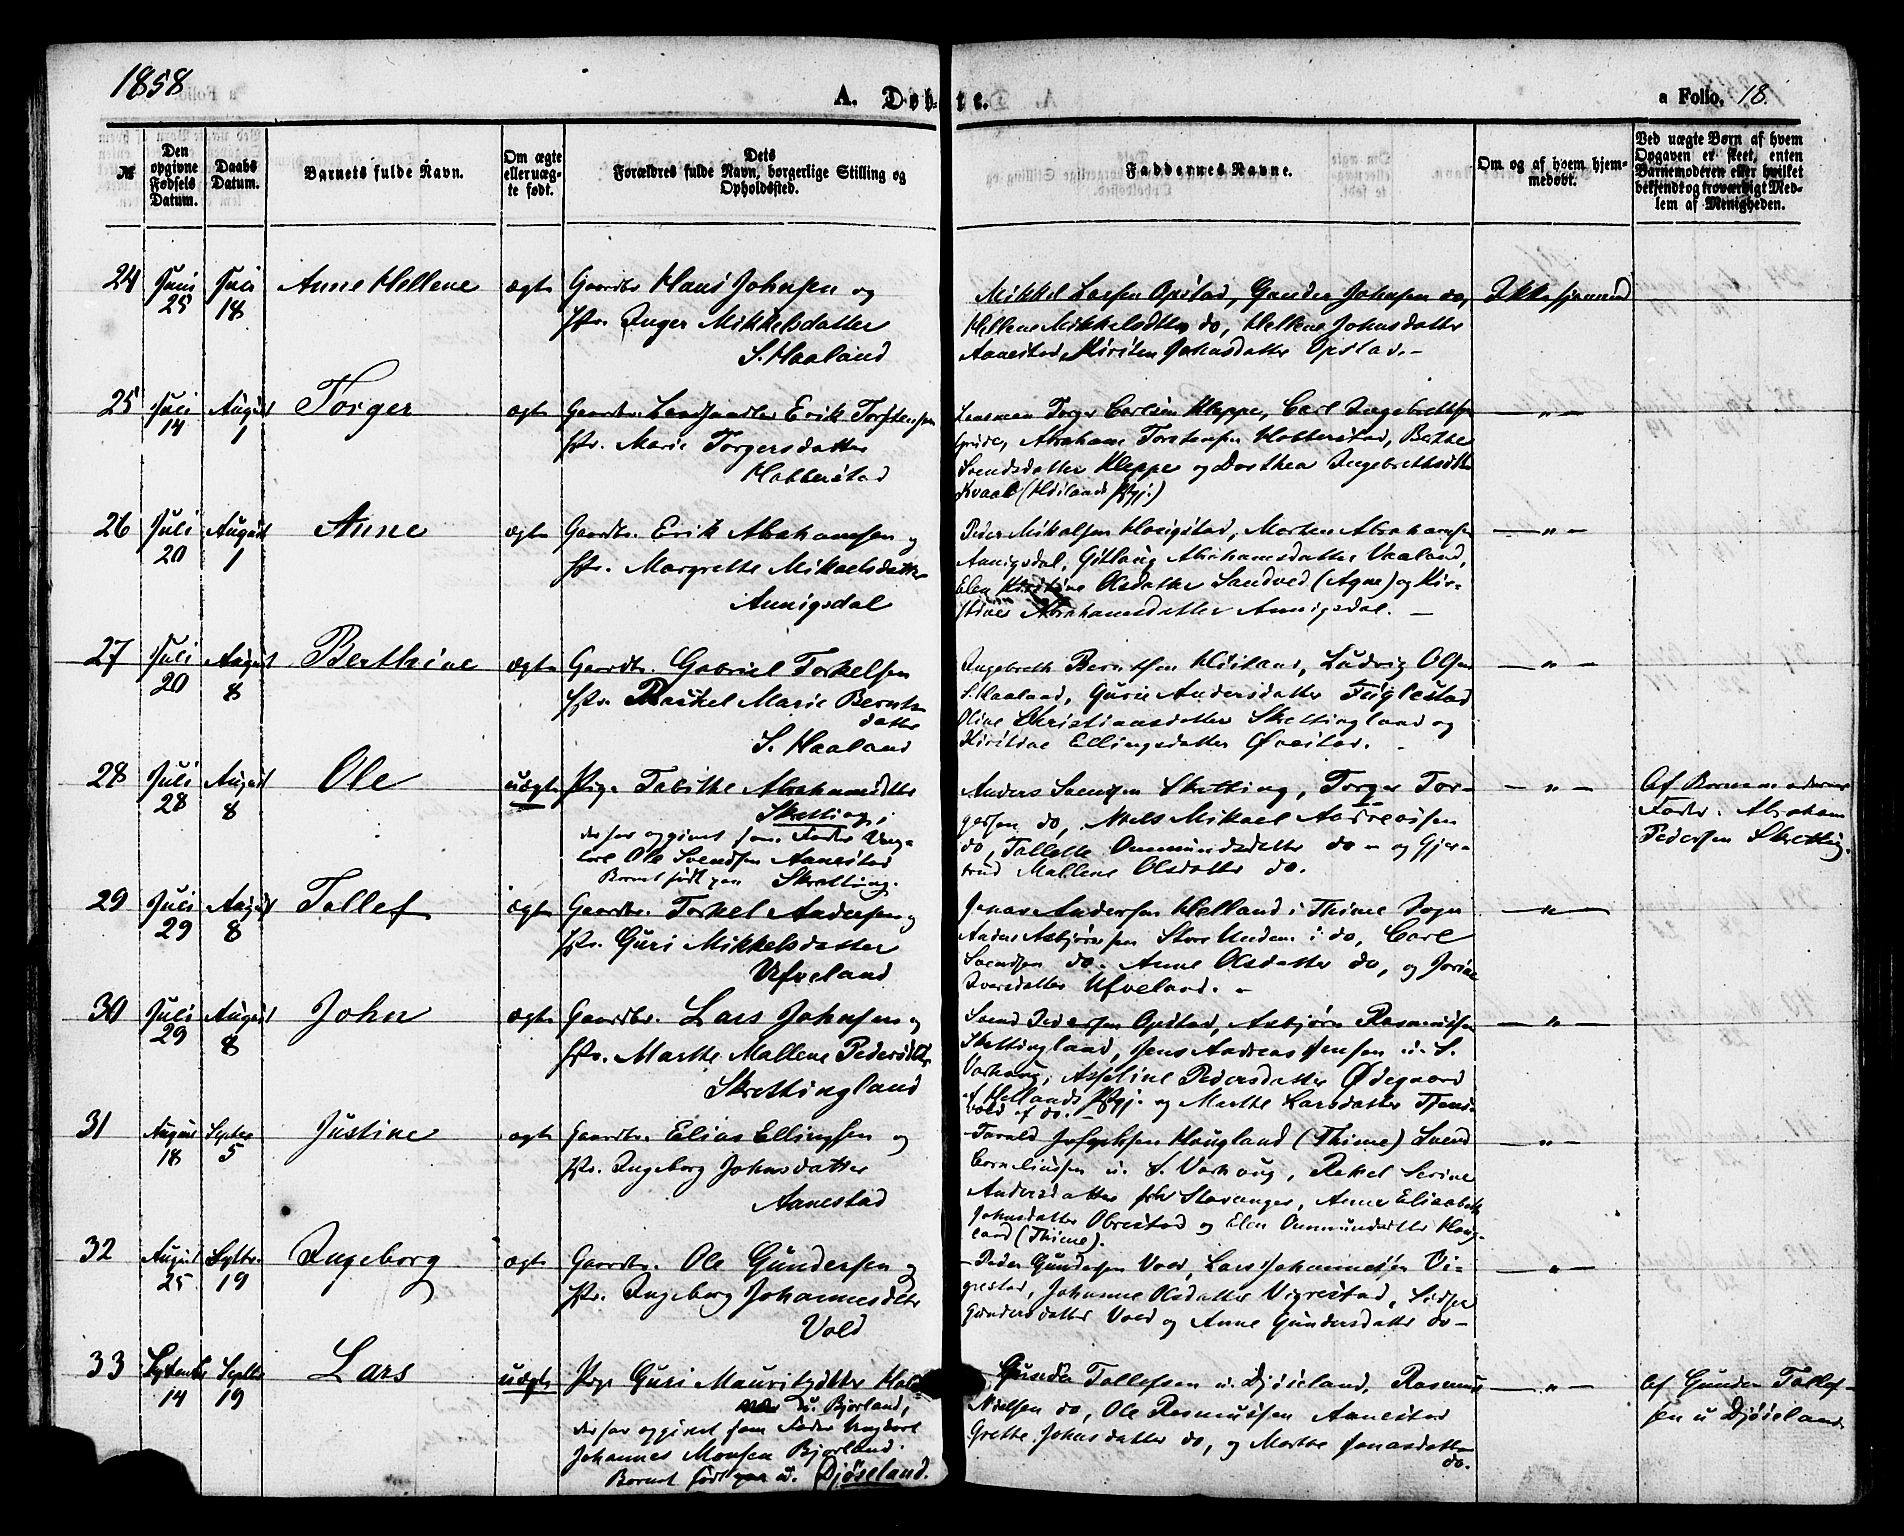 1858
A. Døbte.
a Folio. 18.
№
Den opgivne Fødsels Datum.
Daabs Datum.
Barnets fulde Navn.
Om ægte eller uægte født.
Dets Forældres fulde Navn, borgerlige Stilling og Opholdssted.
Faddernes Navne.
Om og af hvem hjemmedøbt.
Ved uægte Børn af hvem Opgaven er skeet, enten Barnemoderen eller hvilket bekjendt og troværdigt Medlem af Menigheden.
24 Juni 25 Juli 18 Anne Hellene ægte Gaardbr. Hans Johnsen og
Hst. Inger Mikkelsdatter
S. Haaland
Mikkel Larsen Opstad, Gunder Johnsen do,
Hellene Mikkelsdtter do, Hellene Johnsdatter
Aanestad, Kirsten Johnsdatter Opstad. –
Ikke hjemmed
25 Juli 14 August 1 Torger ægte Gaardbr. Landhandler Erik Torstensen
Hst. Marie Torgersdatter
Hobberstad
Lensman Torger Carlsen Kleppe, Carl Ingebretsen
Grude, Abraham Torstensen Hobberstad, Berthe
Svendsdatter Kleppe og Dorthea Ingebrethsdtter
Kvaal (Høilands Pgj.)
— " —
26 Juli 20 August 1 Anne ægte Gaardbr. Erik Abrahamsen og
Hst. Margrethe Mikaelsdatter
Aanigsdal
Peder Mikalsen Hongstad, Morten Abrahamsen
Aanigsdal, Gitlaug Abrahamsdatter Vaaland,
Elen Kirstine Olsdatter Sandved (Ogne) og Kir-
stine Abrahamsdatter Aanigsdal. –
— " —
27 Juli 20 August 8 Berthine ægte Gaardbr. Gabriel Torkelsen
Hst. Raskel Marie Bernts
datter
S. Haaland
Ingebreth Berntsen Høiland, Ludvig Olsen
S. Haaland, Gurie Andersdatter Fuglestad
Oline Christiansdatter Skrettingland og
Kirstine Ellingsdatter Øvestad.
— " —
28 Juli 28 August 8 Ole uægte Pige Tabithe Abrahamsdtter
Skretting;
der har opgivet som Fader Ung-
karl Ole Svendsen Aanestad
Barnet født paa Skretting.
Anders Svendsen Skretting, Torger Tor-
gersen do, Niels Mikael Andreassen
do, Tollette Ommundsdatter do – og Gjer-
trud Mallene Olsdatter do.
— " —
Af Barnemoderens
Fader Abraham
Pedersen Skretting.
29 Juli 29 August 8 Tollef ægte Gaardbr. Torkel Andersen og
Hst. Guri Mikkelsdatter
Ufveland
Jonas Andersen Helland i Thime Sogn
Anders Asbjørnsen Store Undem i do, Carl
Svendsen do. Anne Olsdatter do, og Jorine
Iversdatter Ufveland. –
— " —
30 Juli 29 August 8 John ægte Gaardbr. Lars Johnsen og
Hst. Marthe Mallene Pedersdtr
Skrettingland
Svend Pedersen Opstad, Asbjørn Rasmussen
Skrettingland, Jens Andreas Jensen u. S.
Varhaug, Asseline Pedersdatter Ødegaard
af Hellands Pgj. og Marthe Larsdatter Tjens-
vold af do. –
— " —
31 August 18 Septbr 5 Justine ægte Gaardbr. Elias Ellingsen og
Hst. Ingeborg Johnsdatter
Aanestad
Torald Josephsen Haugland (Thime) Svend
Corneliussen u. S. Varhaug, Rakel Serine
Andersdatter fra Stavanger, Anne Elisabeth
Johnsdatter Obrestad og Elen Ommundsdtter Haug-
land (Thime).
— " —
32 August 25 Septbr. 19 Ingeborg ægte Gaardbr. Ole Gundersen og
Hst. Ingeborg Johannesdtr
Vold
Peder Gundersen Vold, Lars Johannesen Vi-
grestad, Johanne Olsdatter Vigrestad, Sidsel
Gundersdatter Vold og Anne Gundersdatter do –
— " —
33 September 14 Septbr 19 Lars uægte Pige Guri Mauritzdtter
u. Bjorland,
der har opgivet som Fader Ungkarl
Johannes Monsen Bjorland.
Barnet født paa u. Djøseland.
Gunder Tollefsen u. Djøseland, Rasmus
Nielsen do, Ole Rasmussen Aanestad
Grethe Johnsdatter do, og Marthe Jonasdatter
do.
— " —
Af Gunder Tollef-
sen u Djøseland